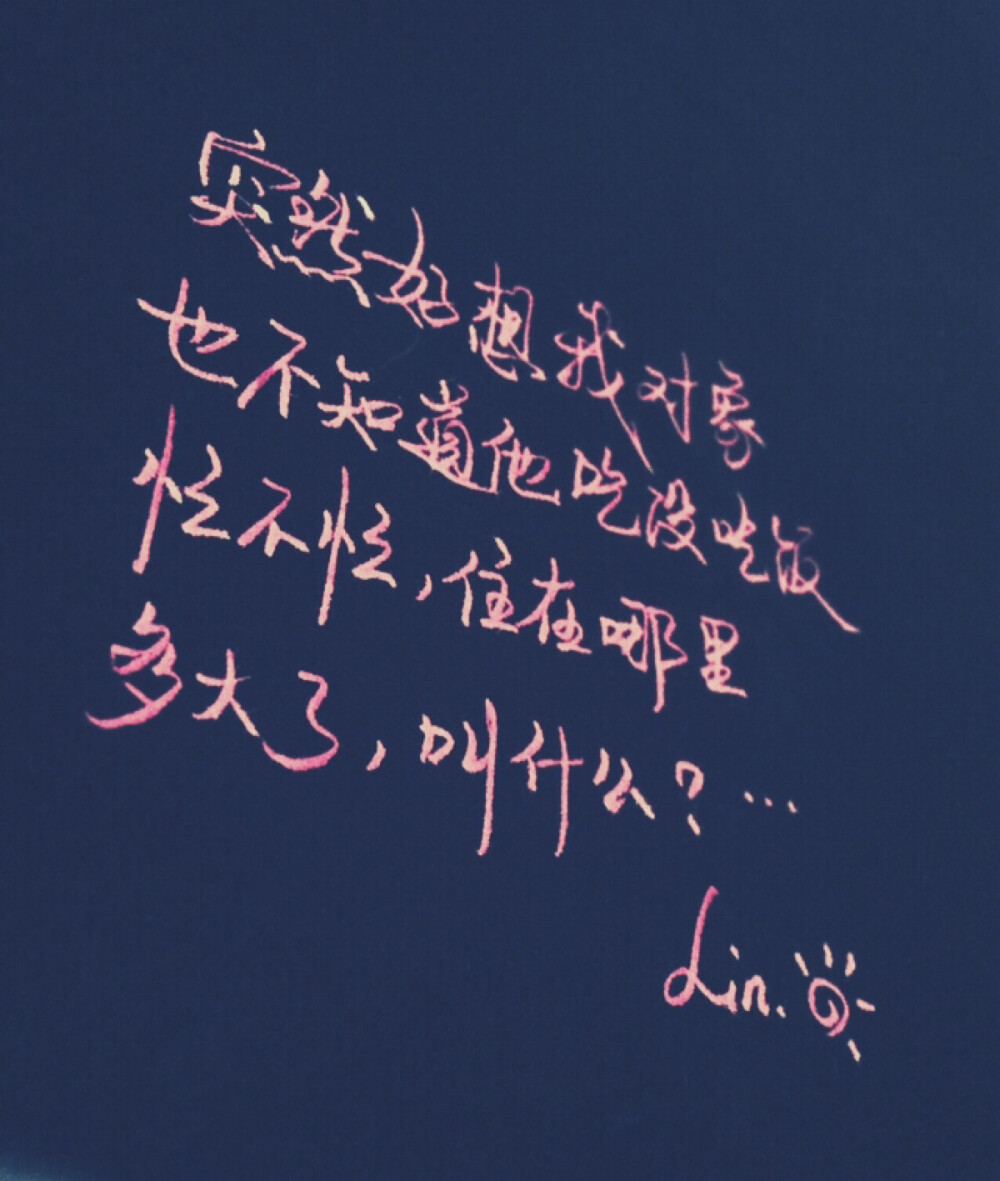 突然好想我对象
也不知道他吃没吃饭
忙不忙,住在哪里
多大了,叫什么?...
Lin.